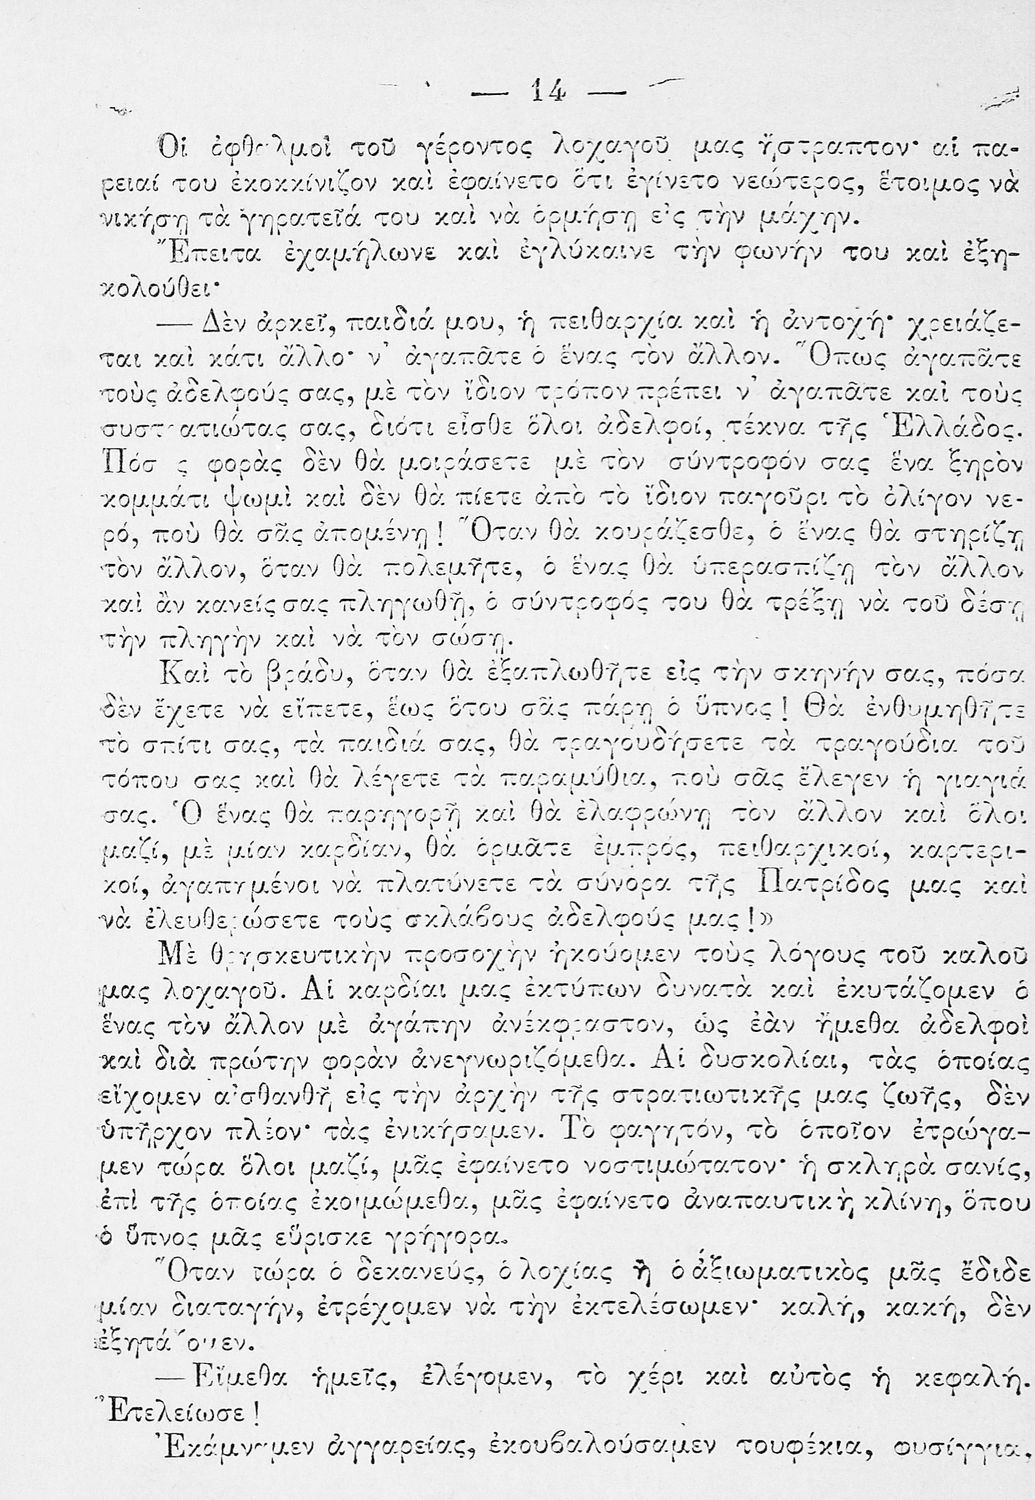 — 14 —
Οἱ ὀφθαλμοὶ τοῦ γέροντος λοχαγοῦ μας ἤστραπτον· αἱ πα-
ρειαί του ἐκοκκίνιζον καὶ ἐφαίνετο ὅτι ἐγίνετο νεώτερος, ἕτοιμος νὰ
νικήσῃ τὰ γηρατειά του καὶ νὰ ὁρμήσῃ εἰς τὴν μάχην.
Ἔπειτα ἐχαμήλωνε καὶ ἐγλύκαινε τὴν φωνήν του καὶ ἐξη-
κολούθει·
— Δὲν ἀρκεῖ, παιδιά μου, ἡ πειθαρχία καὶ ἡ ἀντοχή· χρειάζε-
ται καὶ κάτι ἄλλο· ν᾿ ἀγαπᾶτε ὁ ἕνας τὸν ἄλλον. Ὅπως ἀγαπᾶτε
τοὺς ἀδελφούς σας, μὲ τὸν ἴδιον τρόπον πρέπει ν᾿ ἀγαπᾶτε καὶ τοὺς
συστρατιώτας σας, διότι εἶσθε ὅλοι ἀδελφοί, τέκνα τῆς Ἑλλάδος.
Πόσες φορὰς δὲν θὰ μοιράσετε μὲ τὸν σύντροφόν σας ἕνα ξηρὸν
κομμάτι ψωμὶ καὶ δὲν θὰ πίετε ἀπὸ τὸ ἴδιον παγοῦρι τὸ ὀλίγον νε-
ρό, ποὺ θὰ σᾶς ἀπομένῃ! Ὅταν θὰ κουράζεσθε, ὁ ἕνας θὰ στηρίζῃ
τὸν ἄλλον, ὅταν θὰ πολεμῆτε, ὁ ἕνας θὰ ὑπερασπίζῃ τὸν ἄλλον
καὶ ἂν κανείς σας πληγωθῇ, ὁ σύντροφός του θὰ τρέξῃ νὰ τοῦ δέσῃ
τὴν πληγὴν καὶ νὰ τὸν σώσῃ.
Καὶ τὸ βράδυ, ὅταν θὰ ἐξαπλωθῆτε εἰς τὴν σκηνήν σας, πόσα
δὲν ἔχετε νὰ εἴπετε, ἕως ὅτου σᾶς πάρῃ ὁ ὕπνος! Θὰ ἐνθυμηθῆτε
τὸ σπίτι σας, τὰ παιδιά σας, θὰ τραγουδήσετε τὰ τραγούδια τοῦ
τόπου σας καὶ θὰ λέγετε τὰ παραμύθια, ποὺ σᾶς ἔλεγεν ἡ γιαγιά
σας. Ὁ ἕνας θὰ παρηγορῇ καὶ θὰ ἐλαφρώνῃ τὸν ἄλλον καὶ ὅλοι
μαζί, μὲ μίαν καρδίαν, θὰ ὁρμᾶτε ἐμπρός, πειθαρχικοί, καρτερι-
κοί, ἀγαπημένοι νὰ πλατύνετε τὰ σύνορα τῆς Πατρίδος μας καὶ
νὰ ἐλευθερώσετε τοὺς σκλάβους ἀδελφούς μας!»
Μὲ θρησκευτικὴν προσοχὴν ἠκούομεν τοὺς λόγους τοῦ καλοῦ
μας λοχαγοῦ. Αἱ καρδίαι μας ἐκτύπων δυνατὰ καὶ ἐκυτάζομεν ὁ
ἕνας τὸν ἄλλον μὲ ἀγάπην ἀνέκφραστον, ὡς ἐὰν ἤμεθα ἀδελφοὶ
καὶ διὰ πρώτην φορὰν ἀνεγνωριζόμεθα. Αἱ δυσκολίαι, τὰς ὁποίας
εἴχομεν αἰσθανθῆ εἰς τὴν ἀρχὴν τῆς στρατιωτικῆς μας ζωῆς, δὲν
ὑπῆρχον πλέον· τὰς ἐνικήσαμεν. Τὸ φαγητόν, τὸ ὁποῖον ἐτρώγα-
μεν τώρα ὅλοι μαζί, μᾶς ἐφαίνετο νοστιμώτατον· ἡ σκληρὰ σανίς,
ἐπὶ τῆς ὁποίας ἐκοιμώμεθα, μᾶς ἐφαίνετο ἀναπαυτικὴ κλίνη, ὅπου
ὁ ὕπνος μᾶς εὕρισκε γρήγορα.
Ὅταν τώρα ὁ δεκανεύς, ὁ λοχίας ἢ ὁ ἀξιωματικὸς μᾶς ἔδιδε
μίαν διαταγήν, ἐτρέχομεν νὰ τὴν ἐκτελέσωμεν· καλή, κακή, δὲν
ἐξητάζομεν.
— Εἴμεθα ἡμεῖς, ἐλέγομεν, τὸ χέρι καὶ αὐτὸς ἡ κεφαλή.
Ἐτελείωσε!
Ἐκάμναμεν ἀγγαρείας, ἐκουβαλούσαμεν τουφέκια, φυσίγγια,